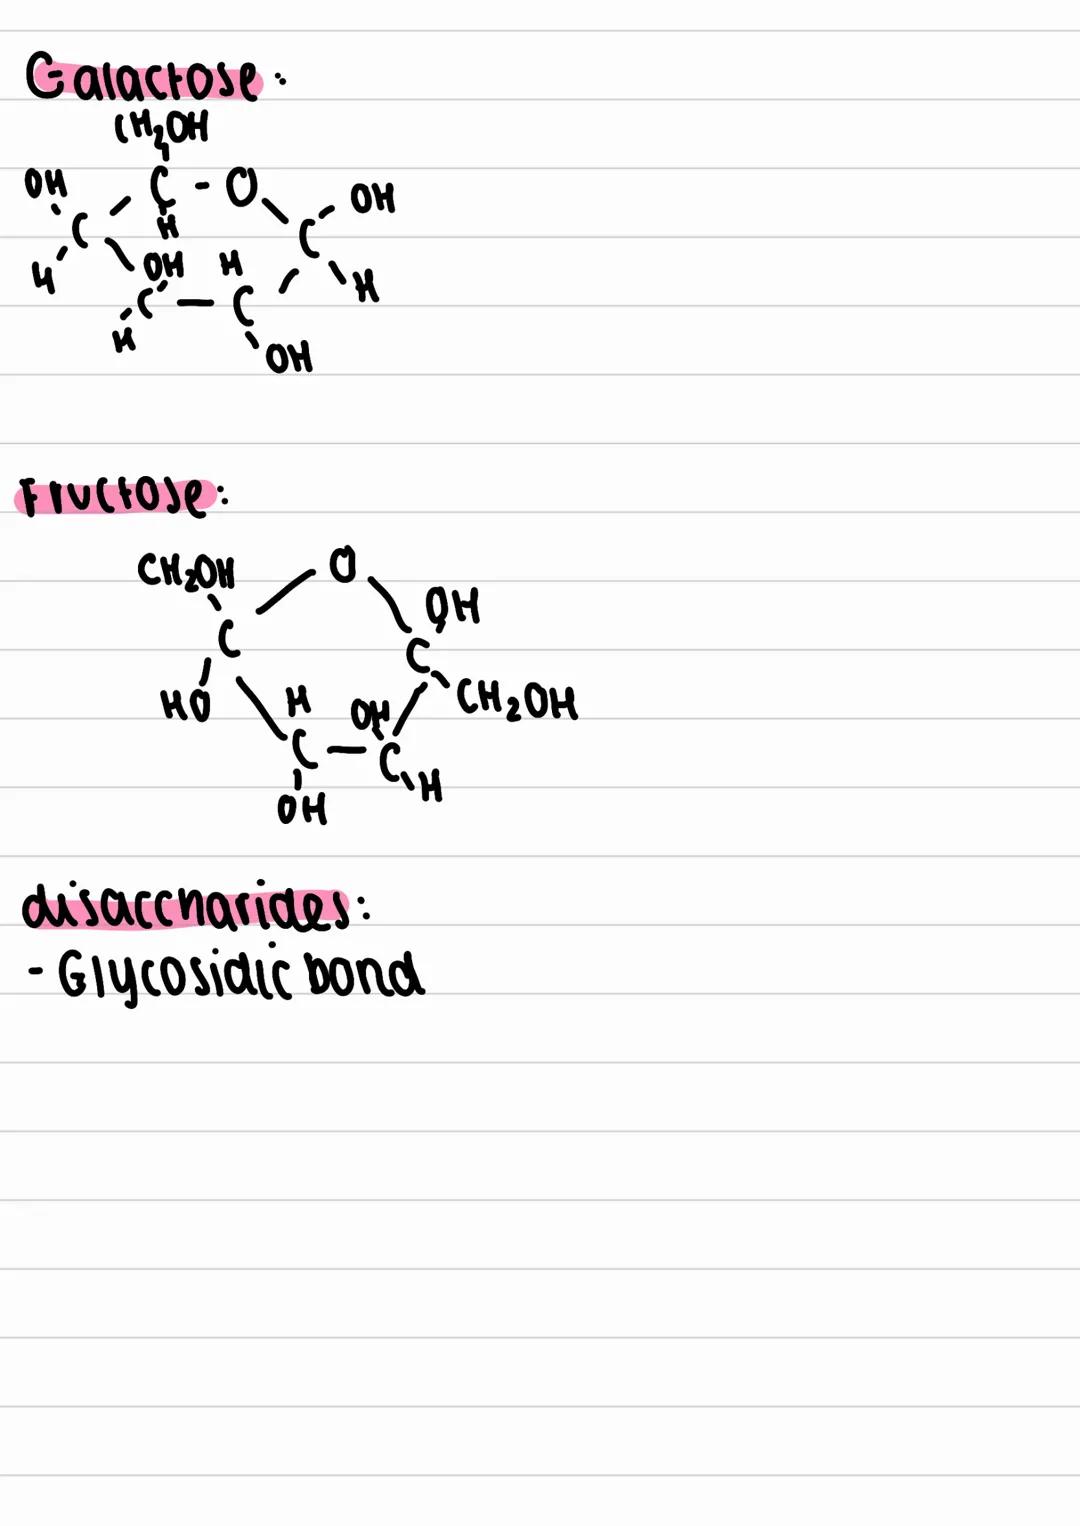 Galactose:
CH₂OH
OH C - O OH
C H C
H OH H H
C — C
H OH
Fructose:
CH₂OH O
OH
C C
HO H OH CH₂OH
C — C
OH H
disaccharides:
- Glycosidic bond